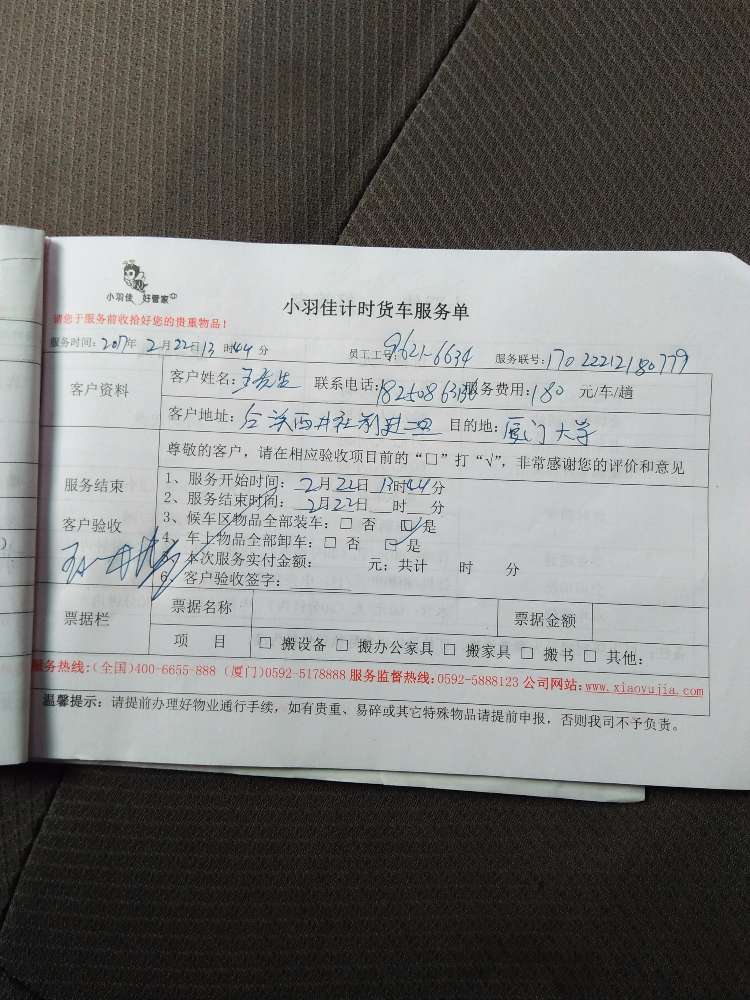 小羽佳 好管家
小羽佳计时货车服务单
请您于服务前收拾好您的贵重物品！
服务时间：2017年 2月22日13时44分 员工工号：9621-6634 服务联号：17022212180779
客户资料
客户姓名：王先生 联系电话： 服务费用：180 元/车/趟
客户地址： 目的地：厦门大学
尊敬的客户，请在相应验收项目前的“□”打“√”，非常感谢您的评价和意见
服务结束
客户验收
1、服务开始时间：2月22日13时44分
2、服务结束时间：2月22日 时 分
3、候车区物品全部装车：□ 否 ☑ 是
4、车上物品全部卸车：□ 否 ☑ 是
5、本次服务实付金额： 元；共计 时 分
6、客户验收签字：
票据栏
票据名称 票据金额
项 目 □ 搬设备 □ 搬办公家具 □ 搬家具 □ 搬书 □ 其他：
服务热线：（全国）400-6655-888（厦门）0592-5178888 服务监督热线：0592-5888123 公司网站：www.xiaoyujia.com
温馨提示：请提前办理好物业通行手续，如有贵重、易碎或其它特殊物品请提前申报，否则我司不予负责。